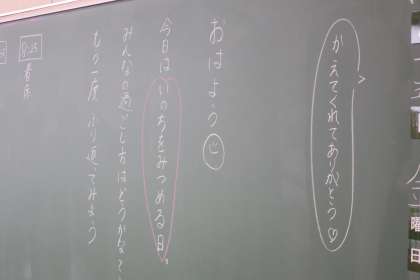 かえてくれてありがとう♡
おはよう☺
今日はいのちをみつめる日。
みんなの過ごし方はどうかな？
もう一度ふり返ってみよう
8:25
着席
曜
日